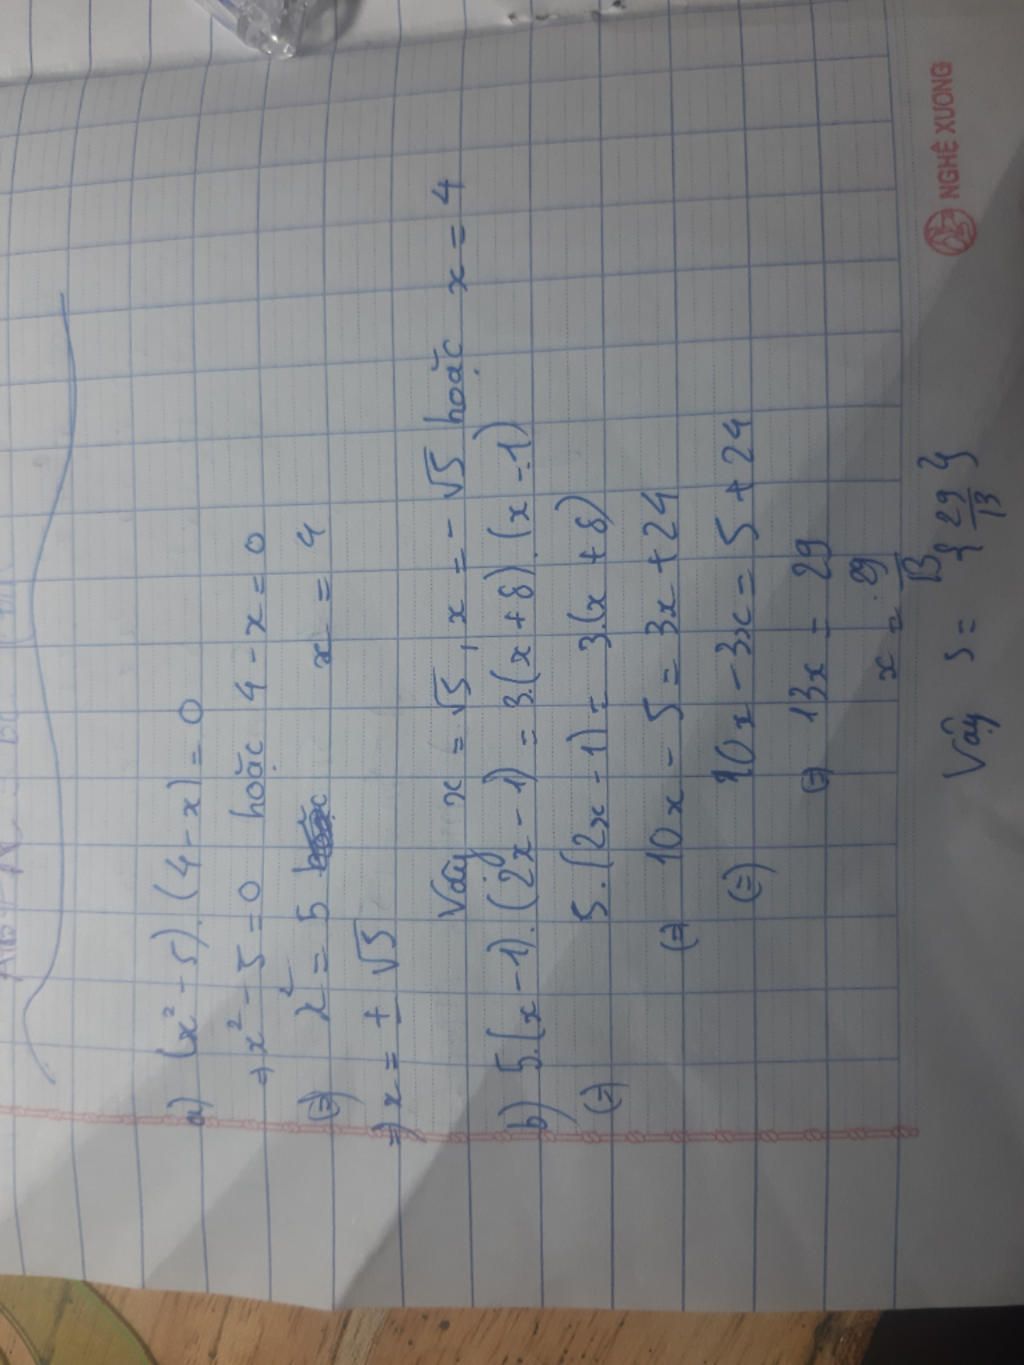 a) (x² - 5).(4 - x) = 0
⇒ x² - 5 = 0 hoặc 4 - x = 0
(=) x² = 5 x = 4
=) x = ± √5
Vậy x = √5, x = - √5 hoặc x = 4
b) 5.(x - 1).(2x - 1) = 3.(x + 8).(x - 1)
(=) 5.(2x - 1) = 3.(x + 8)
(=) 10x - 5 = 3x + 24
(=) 10x - 3x = 5 + 24
(=) 13x = 29
x = 29/13
Vậy S = { 29/13 }
NGHÊ XUONG